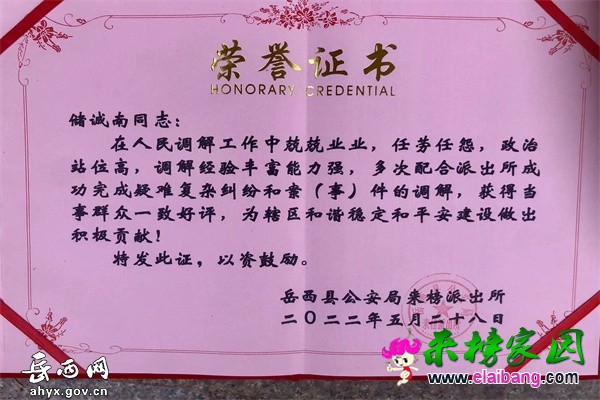 荣誉证书
HONORARY CREDENTIAL
储诚南同志：
在人民调解工作中兢兢业业，任劳任怨，政治
站位高，调解经验丰富能力强，多次配合派出所成
功完成疑难复杂纠纷和案（事）件的调解，获得当
事群众一致好评，为辖区和谐稳定和平安建设做出
积极贡献！
特发此证，以资鼓励。
岳西县公安局来榜派出所
二〇二二年五月二十八日
岳西网
ahyx.gov.cn
来榜家园
www.elaibang.com